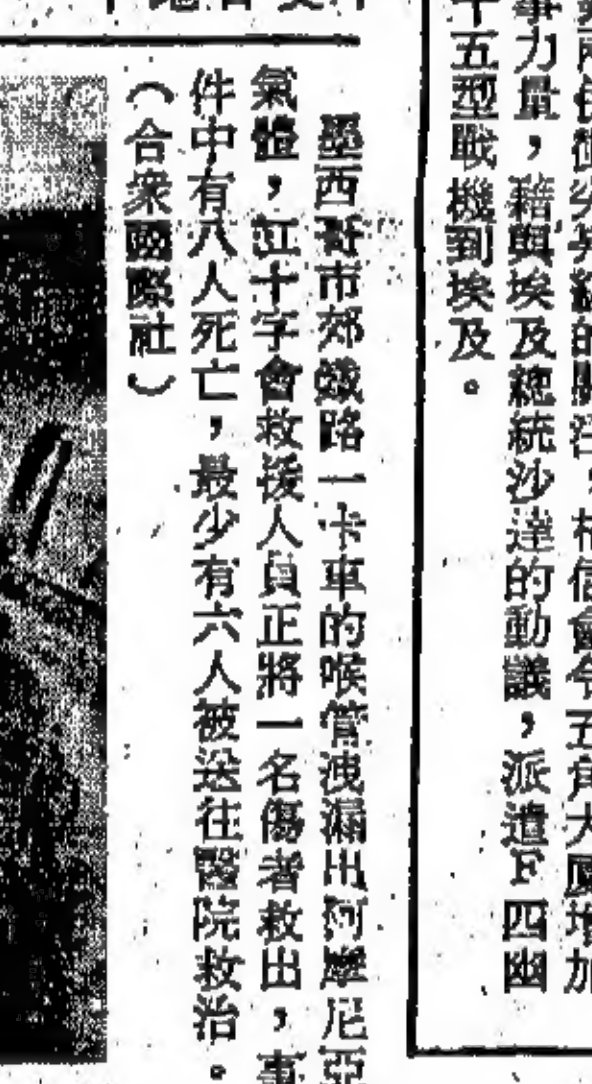 的關注，相信會令五角大厦增加
事力量，藉與埃及總統沙達的動議，派遣F四幽
十五型戰機到埃及。
墨西哥市郊鐵路一卡車的喉管洩漏出阿摩尼亞
氣體，紅十字會救援人員正將一名傷者救出，事
件中有八人死亡，最少有六人被送往醫院救治。
（合衆國際社）